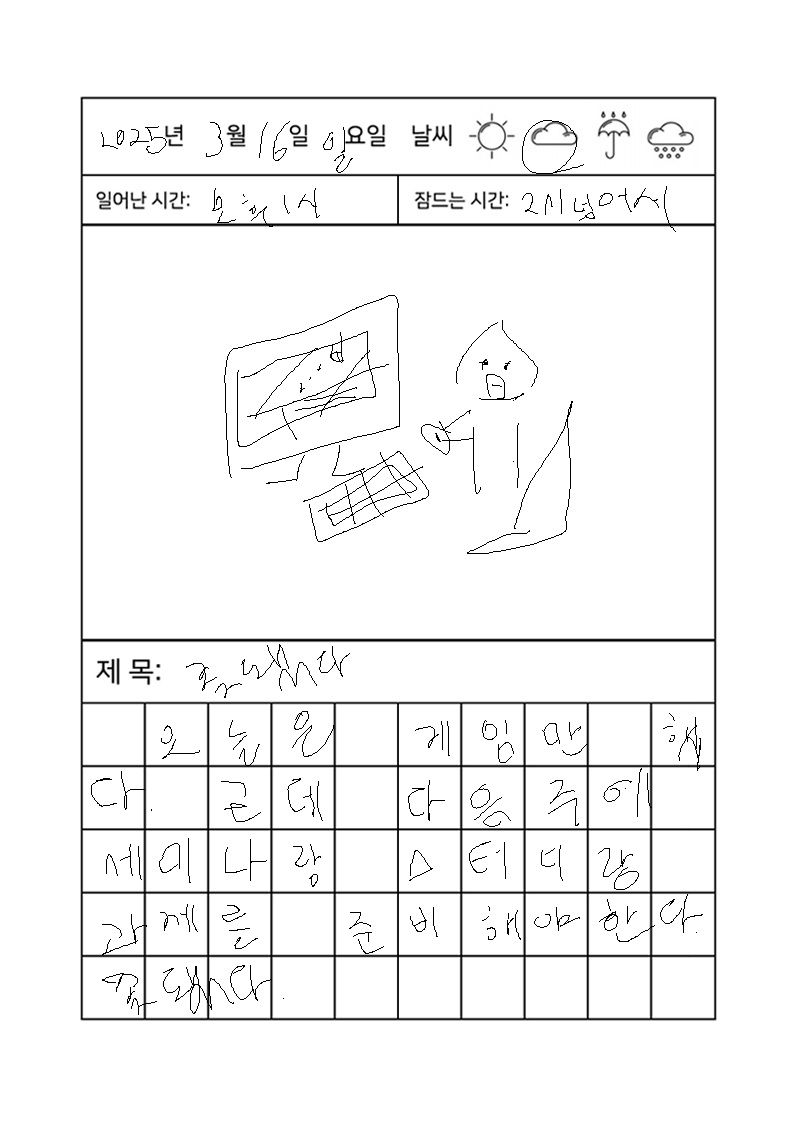 2025년 3월 16일 일요일 날씨
일어난 시간: 오후 1시 잠드는 시간: 2시 넘어서
제 목: 좆됐다
오늘은 게임만 했
다. 근데 다음주에
세미나랑 스터디랑
과제를 준비해야한다.
좆됐다.